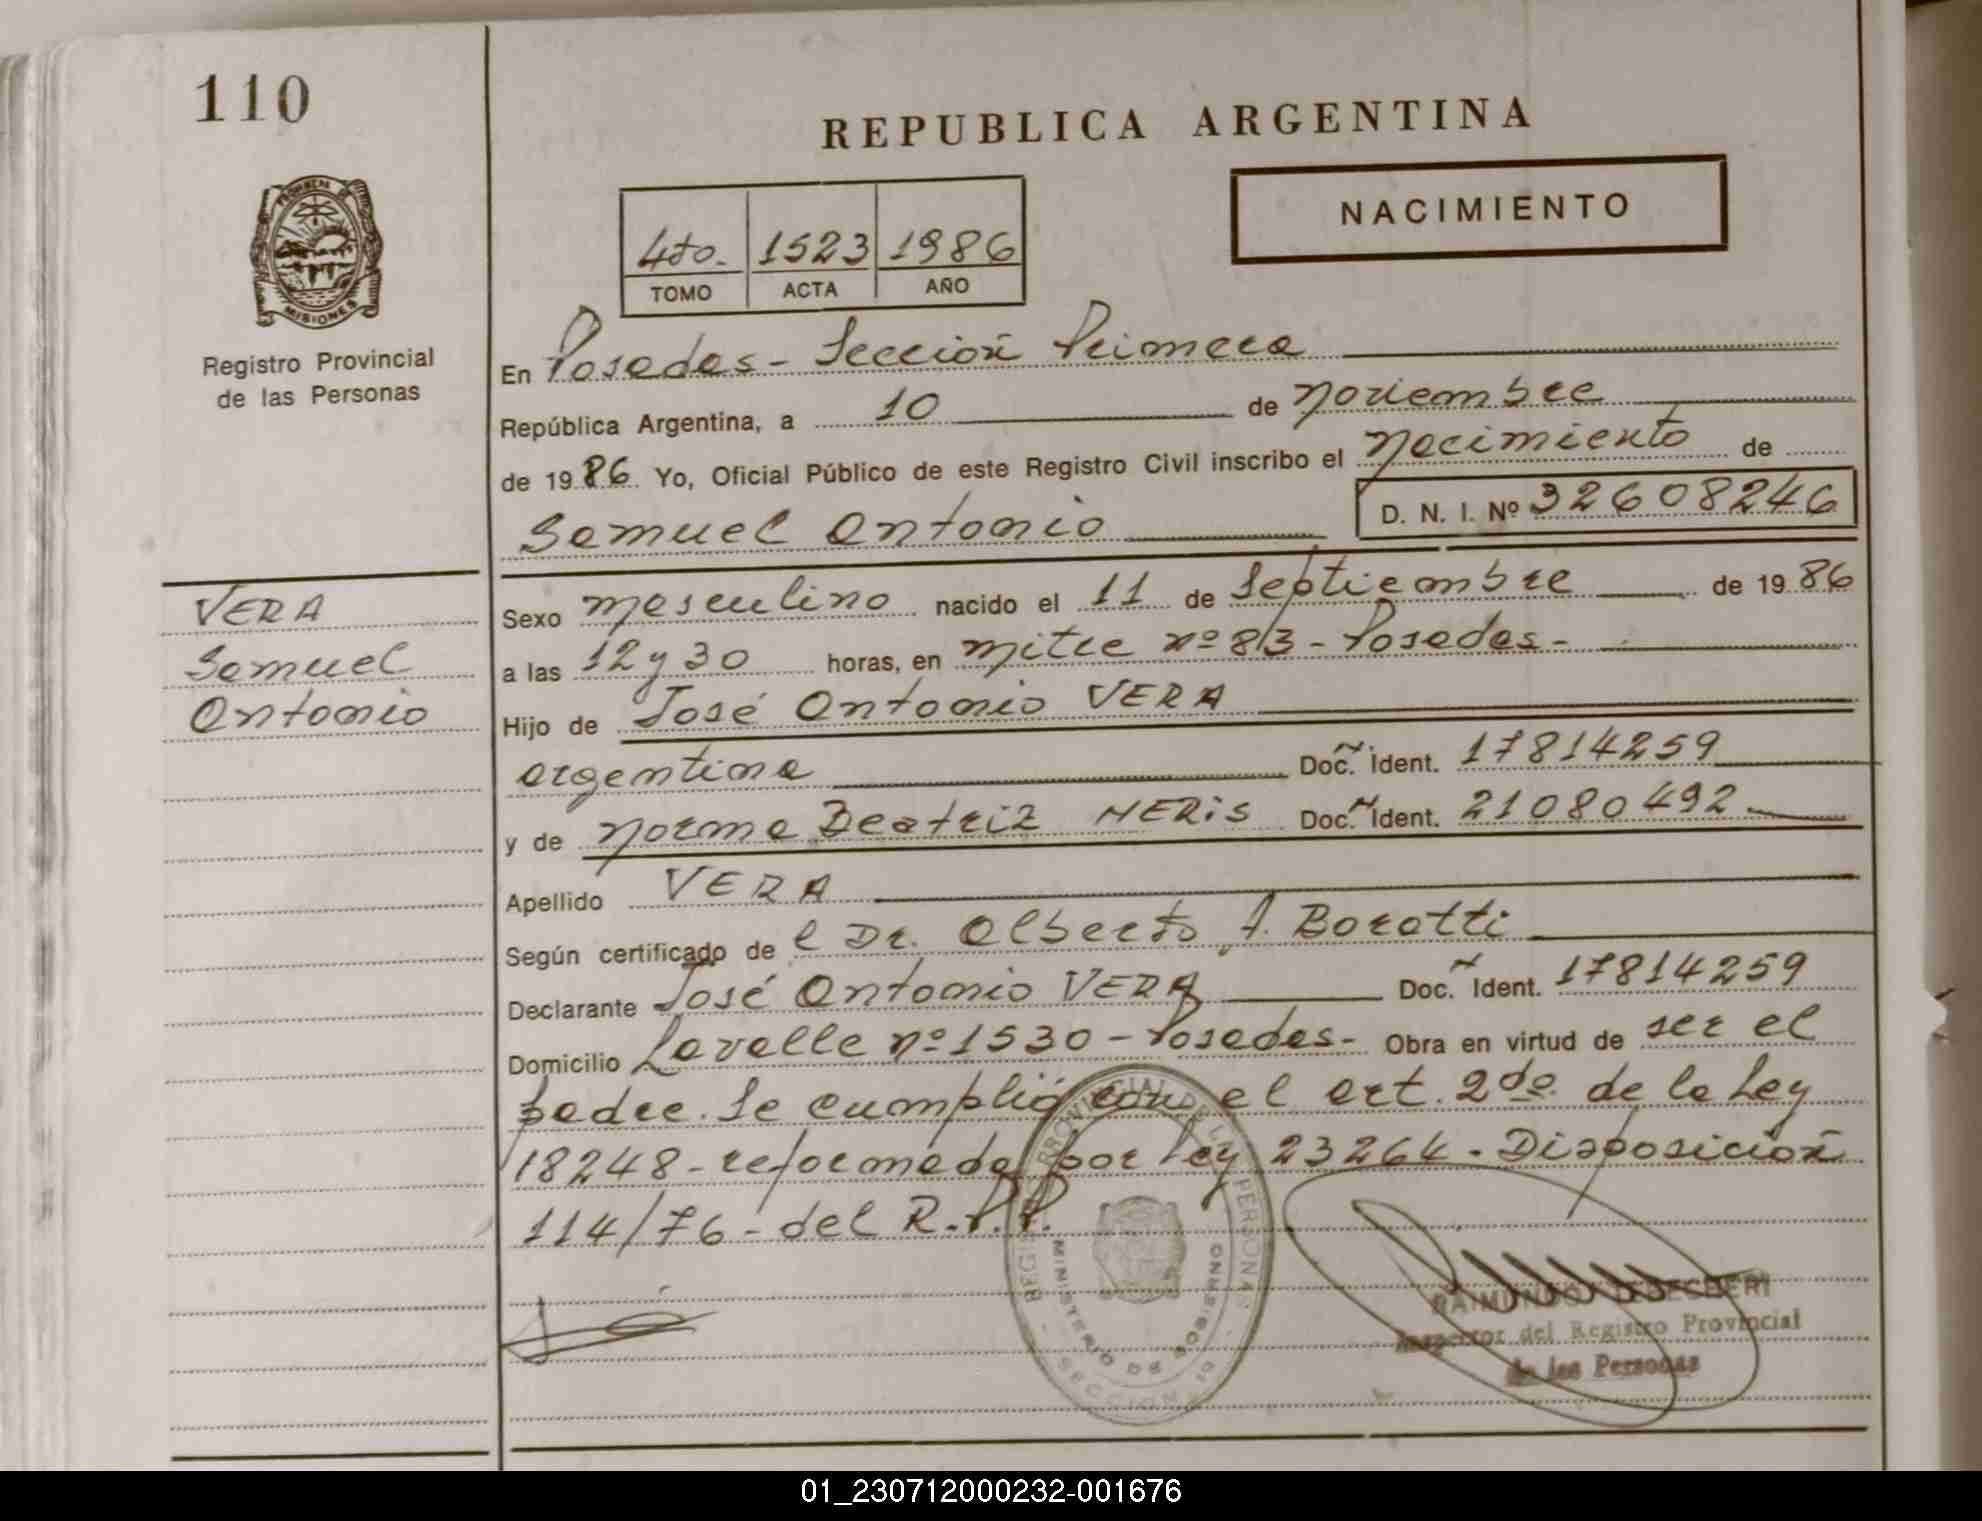 110
REPUBLICA ARGENTINA
NACIMIENTO
4to. 1523 1986
TOMO ACTA AÑO
PROVINCIA DE
MISIONES
Registro Provincial
de las Personas
En Posadas - Sección Primera
República Argentina, a 10 de noviembre
de 1986 Yo, Oficial Público de este Registro Civil inscribo el nacimiento de
Samuel Antonio D. N. I. Nº 32608246
VERA
Samuel
Antonio
Sexo masculino nacido el 11 de septiembre de 1986
a las 12 y 30 horas, en mitre nº 813 - Posadas -
Hijo de José Antonio VERA
argentina Doc. Ident. 17814259
y de norma Beatriz NERIS Doc. Ident. 21080492
Apellido VERA
Según certificado de l Dr. Alberto A. Boratti
Declarante José Antonio VERA Doc. Ident. 17814259
Domicilio Lavalle nº 1530 - Posadas - Obra en virtud de ser el
padre. Se cumplió con el art. 2do. de la Ley
18248 - reformada por Ley 23264. Disposición
114/76 - del R.P.P.
PROVINCIAL DE LAS PERSONAS
MINISTERIO DE GOBIERNO
SECCION 1º
RAIMUNDO
Inspector del Registro Provincial
de las Personas
01_230712000232-001676